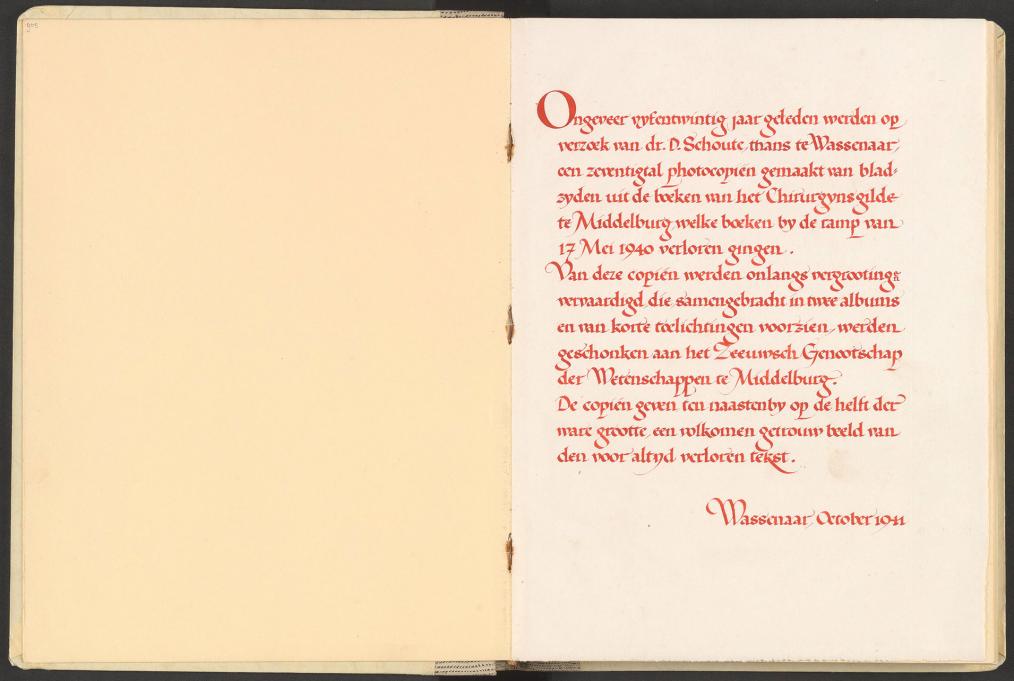 Ongeveer vyfentwintig jaar geleden werden op
verzoek van dr. D. Schoute, thans te Wassenaar,
een zeventigtal photocopiën gemaakt van blad-
zyden uit de boeken van het Chirurgynsgilde
te Middelburg, welke boeken by de ramp van
17 Mei 1940 verloren gingen.
Van deze copiën werden onlangs vergrootingen
vervaardigd, die samengebracht in twee albums
en van korte toelichtingen voorzien, werden
geschonken aan het Zeeuwsch Genootschap
der Wetenschappen te Middelburg.
De copiën geven ten naastenby op de helft der
ware grootte, een volkomen getrouw beeld van
den voor altyd verloren tekst.
Wassenaar, October 1941